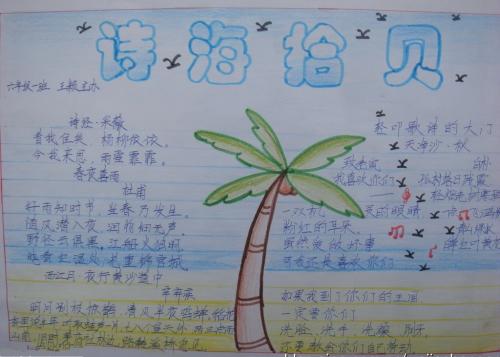 诗海拾贝
六年级一班 王颖主办
诗经·采薇
昔我往矣,杨柳依依。
今我来思,雨雪霏霏。
春夜喜雨
杜甫
好雨知时节,当春乃发生。
随风潜入夜,润物细无声。
野径云俱黑,江船火独明。
晓看红湿处,花重锦官城。
西江月·夜行黄沙道中
辛弃疾
明月别枝惊鹊,清风半夜鸣蝉。稻花
香里说丰年,听取蛙声一片。七八个星天外,两三点雨
山前。旧时茅店社林边,路转溪桥忽见。
轻叩歌诗的大门
天净沙·秋
白朴
致老鼠
我喜欢你们
孤村落日残霞
轻烟老树寒鸦
一双机 灵的眼睛
粉红的耳朵
虽然 做坏事
可我还是喜欢你们
如果我到了你们的王国
一定要你们
洗脸、洗手、洗澡、刷牙
还要教会你们自己劳动